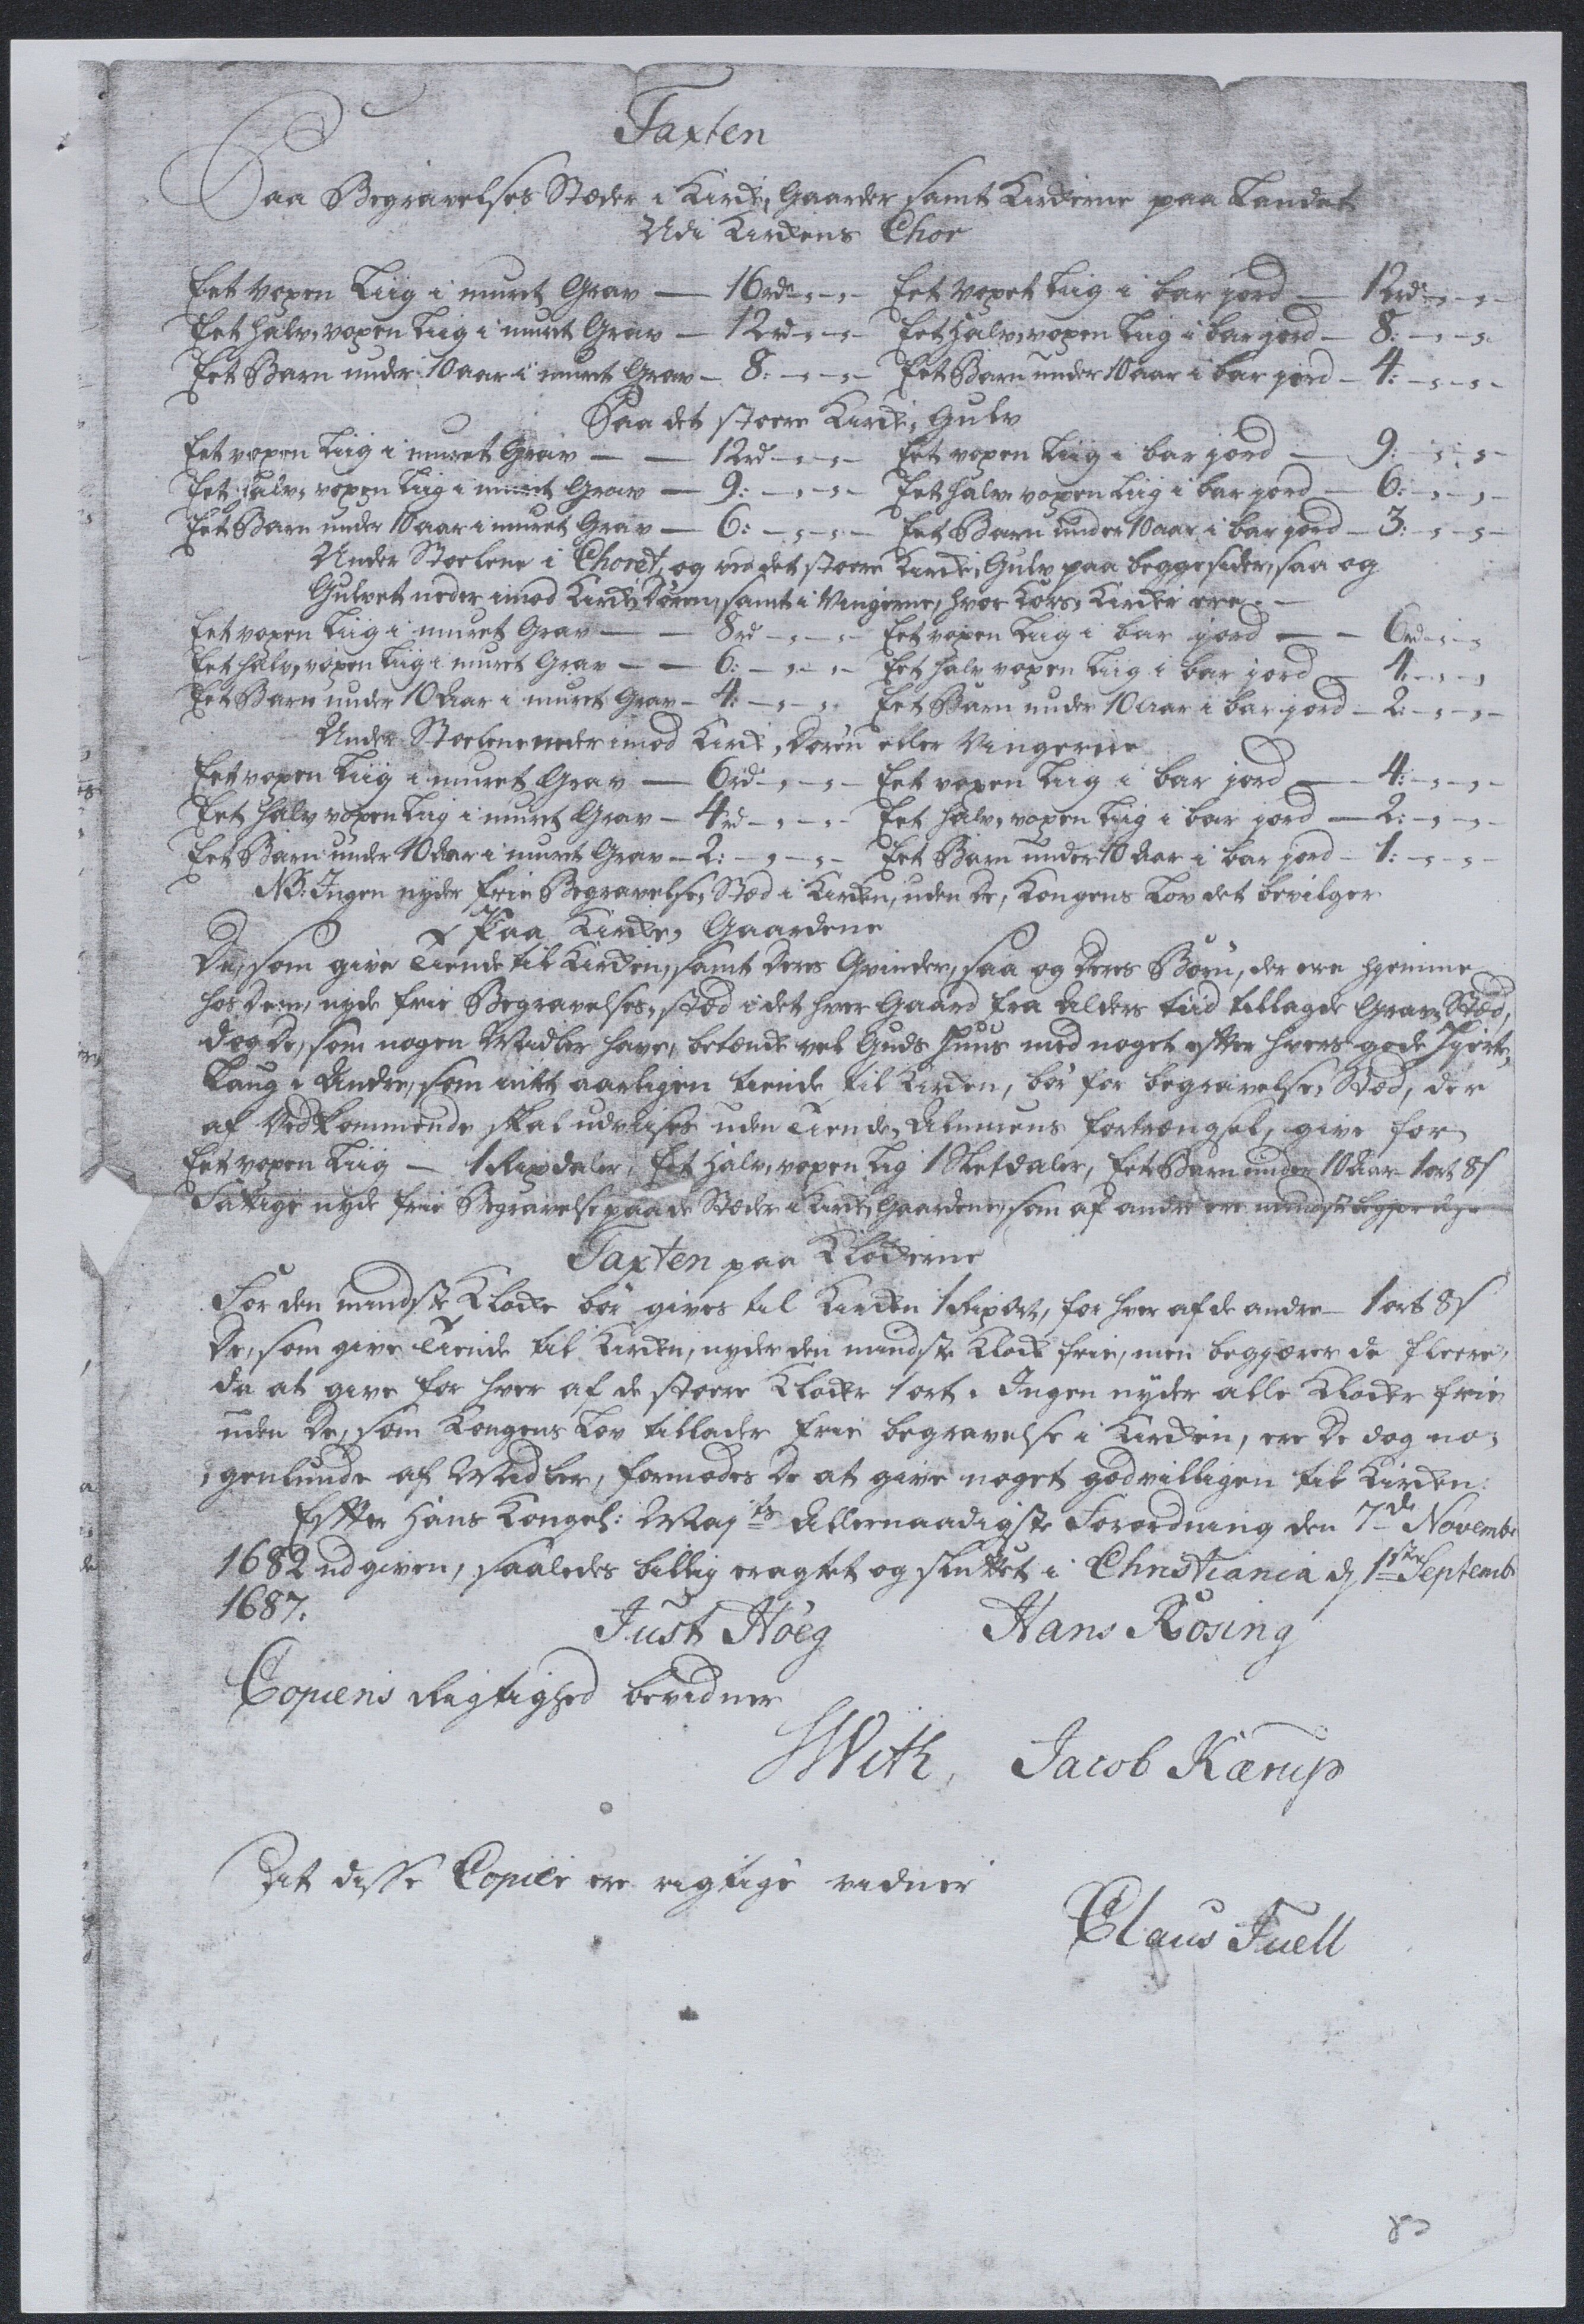 Taxten
Paa Begravelses Stæder i Kirke, Gaarder samt Kirkerne paa Landet
Udi Kirkens Chor
Eet voxen Liig i muret Grav — 16 rd - „ - „ - Eet voxet Liig i bar jord — 12 rd - „ - „ -
Eet halv, voxen Liig i muret Grav — 12 rd - „ - „ - Eet halv, voxen Liig i bar jord — 8: - „ - „ -
Eet Barn under 10 aar i muret Grav — 8: - „ - „ - Eet Barn under 10 aar i bar jord — 4: - „ - „ -
Paa det stoere Kirke, Gulv
Eet voxen Liig i muret Grav — — 12 rd - „ - „ - Eet voxen Liig i bar jord — 9: - „ - „ -
Eet halv, voxen Liig i muret Grav — 9: - „ - „ - Eet halv voxen Liig i bar jord — 6: - „ - „ -
Eet Barn under 10 aar i muret Grav — 6: - „ - „ - Eet Barn under 10 aar i bar jord — 3: - „ - „ -
Under Stoelene i Choret, og ved det stoere Kirke, Gulv paa begge sider, saa og
Gulvet neder imod Kirke, Døren, samt i Vingerne, hvor Kors, Kirker ere. —
Eet voxen Liig i muret Grav — — 8 rd - „ - „ - Eet voxen Liig i bar jord — — 6 rd - „ - „
Eet halv, voxen Liig i muret Grav — — 6: - „ - „ - Eet halv voxen Liig i bar jord — 4: - „ - „
Eet Barn under 10 Aar i muret Grav — 4: - „ - „ - Eet Barn under 10 Aar i bar jord — 2: - „ - „ -
Under Stoelene neder imod Kirke, Døren eller Vingerne
Eet voxen Liig i muret Grav — 6 rd - „ - „ - Eet voxen Liig i bar jord — 4: - „ - „ -
Eet halv voxen Liig i muret Grav — 4 rd - „ - „ - Eet halv, voxen Liig i bar jord — 2: - „ - „ -
Eet Barn under 10 Aar i muret Grav — 2: - „ - „ - Eet Barn under 10 Aar i bar jord — 1: - „ - „ -
NB: Ingen nyder frie Begravelse, Stæd i Kirken, uden De, Kongens Lov det bevilger
Paa Kirke, Gaardene
De, som give Tiende til Kirken, samt Deres Qvinder, saa og Deres Børn, der ere hjemme
hos Dem, nyde frie Begravelses, stæd i det hver Gaard fra Alders tiid tillagde Grav, Stæd,
dog De, som nogen Midler have, betænke vel Guds Huus med noget efter hvers gode Hjerte,
Laug i Andre, som intet aarligen tiende til Kirken, bør for begravelse, Stæd, der
af Vedkommende skal udviises uden Tiende, Almuens fortrængsel, give for
Eet voxen Liig — 1 Rixdaler, Eet halv, voxen Lig 1 Sletdaler, Eet Barn under 10 Aar 1 ort 8 s
Fattige nyde frie Begravelse paa de Stæder i Kirke, Gaardene, som af andre ere mindst begjærlige
Taxten paa Klokkerne
For den mindste Klokke bør gives til Kirken 1 Rix ort, for hver af de andre — 1 ort 8 s
De, som give Tiende til Kirken, nyder den mindste Klokke frie, men begjærer de fleere,
da at give for hver af de stoere Klokker 1 ort. Ingen nyder alle Klokker frie
uden De, som Kongens Lov tillader frie begravelse i Kirken, ere De dog no,
genlunde af Midler, formodes De at give noget godvilligen til Kirken.
Efter Hans Kongel: Majts Allernaadigste Forordning den 7de Novembr
1682 udgiven, saaledes billig eragtet og sluttet i Christiania d 1ste Septemb
1687.
Just Høeg Hans Rosing
Copiens Rigtighed bevidner
With, Jacob Kærup
At disse Copier ere rigtige vidner
Claus Juell